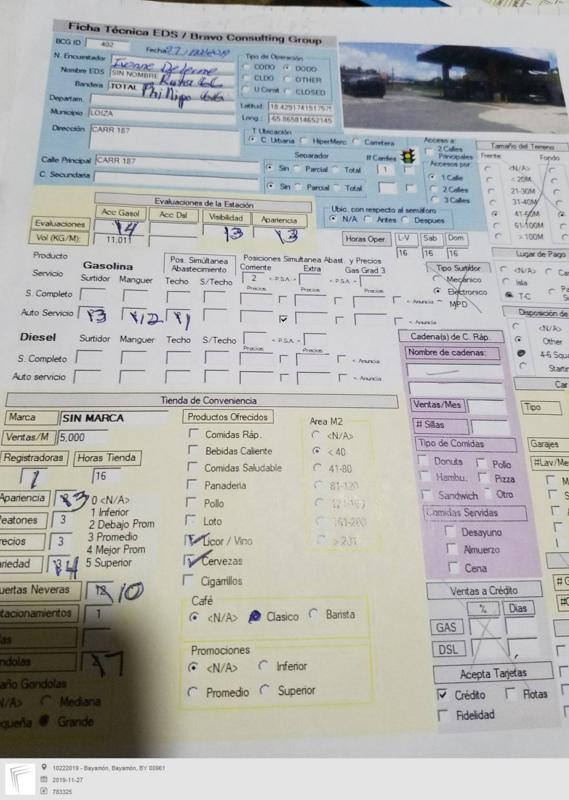 Ficha Técnica EDS / Bravo Consulting Group
BCG ID 402 Fecha
N. Encuestador Ivonne
Nombre EDS SIN NOMBRE Ruta 66
Bandera TOTAL Phillips 66
Departam.
Municipio LOIZA
Dirección CARR 187
Calle Principal CARR 187
C. Secundaria
Tipo de Operación
CODO DODO
CLDO OTHER
U Const CLOSED
Latitud: 18.429174151757
Long.: -65.865814652145
T Ubicación
C. Urbana HiperMerc Carretera
Separador
Sin Parcial Total
Sin Parcial Total
# Carriles
1
Acceso a:
2 Calles
Principales
Accesos por:
1 Calle
2 Calles
3 Calles
Tamaño del Terreno
Frente Fondo
<N/A>
< 20M
21-30M
31-40M
41-60M
61-100M
> 100M
Evaluaciones de la Estación
Acc Gasol Acc Dsl Visibilidad Apariencia
Evaluaciones 4 3 3
Vol (KG/M): 11,011
Ubic. con respecto al semáforo
N/A Antes Despues
Horas Oper. L-V Sab Dom
16 16 16
Lugar de Pago
<N/A>
Isla
T-C
Producto
Servicio
Gasolina
Pos. Simultánea
Abastecimiento
Posiciones Simultánea Abast. y Precios
Surtidor Manguer Techo S/Techo
Corriente Extra Gas Grad 3
2 < P.S.A. > < P.S.A. >
Precios Precios Precios
S. Completo < Anuncia
Auto Servicio 3 12 1 < Anuncia
Tipo Surtidor
Mecánico
Electronico
MPD
Diesel
Surtidor Manguer Techo S/Techo
< P.S.A. >
Precios Precios
S. Completo < Anuncia
Auto servicio < Anuncia
Disposición de
<N/A>
Other
Cadena(s) de C. Ráp.
Nombre de cadenas:
Ventas/Mes
# Sillas
Tipo de Comidas
Donuts Pollo
Hambu. Pizza
Sandwich Otro
Comidas Servidas
Desayuno
Almuerzo
Cena
Tipo
Garajes
#Lav/Me
Tienda de Conveniencia
Marca SIN MARCA
Ventas/M 5,000
Registradoras Horas Tienda
1 16
Apariencia 3
Peatones 3
Precios 3
Variedad 4
0 <N/A>
1 Inferior
2 Debajo Prom
3 Promedio
4 Mejor Prom
5 Superior
Puertas Neveras 10
Estacionamientos 1
Gondolas 7
Tamaño Gondolas
<N/A> Mediana
Pequeña Grande
Productos Ofrecidos
Comidas Ráp.
Bebidas Caliente
Comidas Saludable
Panaderia
Pollo
Loto
Licor / Vino
Cervezas
Cigarrillos
Area M2
<N/A>
< 40
41-80
81-120
161-200
> 201
Café
<N/A> Clasico Barista
Promociones
<N/A> Inferior
Promedio Superior
Ventas a Crédito
% Dias
GAS
DSL
Acepta Tarjetas
Crédito Flotas
Fidelidad
10222019 - Bayamón, Bayamón, BY 00961
2019-11-27
783325